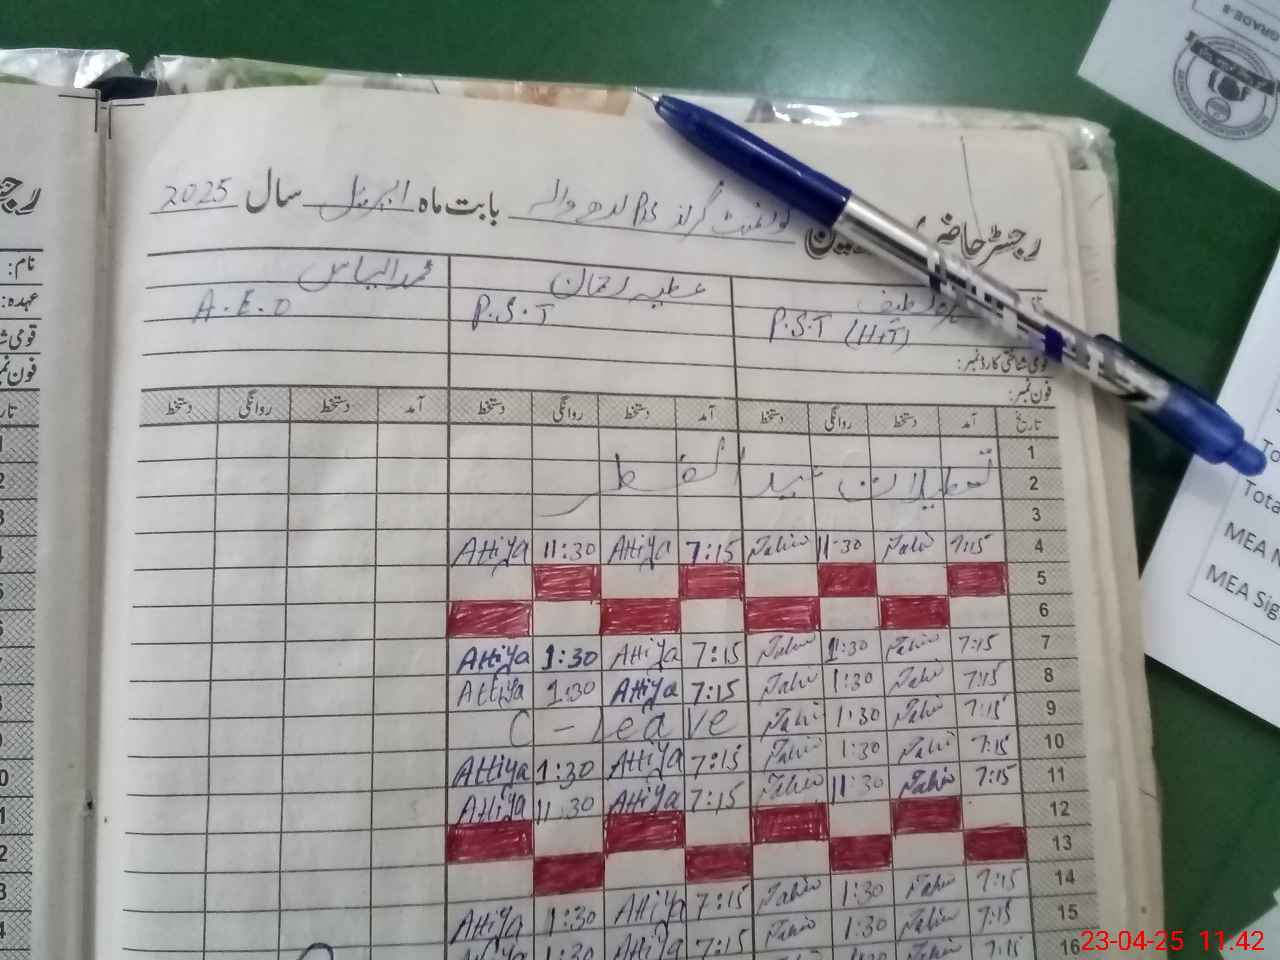 GRADE-8
رجسٹر حاضری
گورنمنٹ گرلز P/S لدھر والہ بابت ماہ اپریل سال 2025
عطیہ رحمان محمد الیاس
P.S.T (H.T) P.S.T A.E.O
قومی شناختی کارڈ نمبر:
فون نمبر:
نام:
عہدہ:
تاریخ آمد دستخط روانگی دستخط آمد دستخط روانگی دستخط آمد دستخط روانگی دستخط
1
تعطیلات عید الفطر
2
3
Attiya 11:30 Attiya 7:15 Tahir 11:30 Tahir 7:15 4
5
6
Attiya 1:30 Attiya 7:15 Tahir 1:30 Tahir 7:15 7
Attiya 1:30 Attiya 7:15 Tahir 1:30 Tahir 7:15 8
C-Leave Tahir 1:30 Tahir 7:15 9
Attiya 1:30 Attiya 7:15 Tahir 1:30 Tahir 7:15 10
Attiya 11:30 Attiya 7:15 Tahir 11:30 Tahir 7:15 11
12
13
Attiya 1:30 Attiya 7:15 Tahir 1:30 Tahir 7:15 14
Attiya 1:30 Attiya 7:15 Tahir 1:30 Tahir 7:15 15
16
Tota
MEA
MEA Sig
23-04-25 11.42